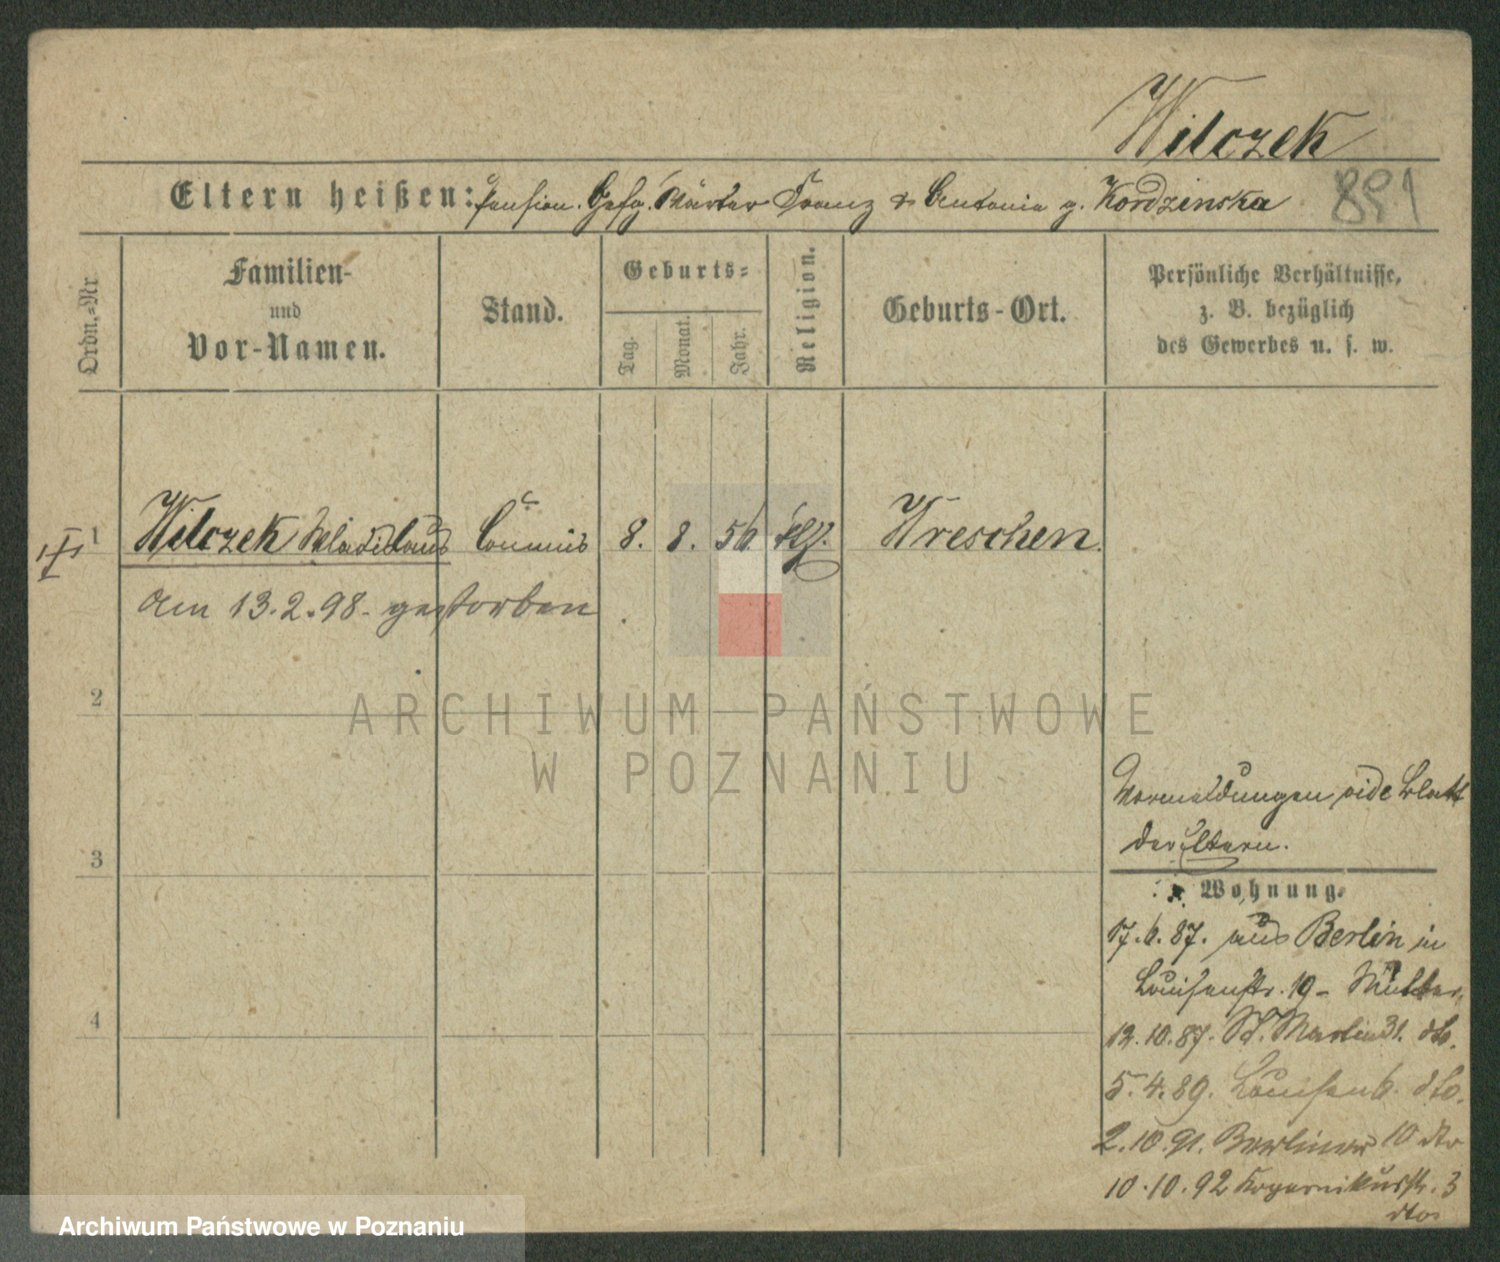 Wilczek
Eltern heißen: pension. Gefg. Wärter Franz & Antonia g. Kordzinska 891
Ordn.-Nr
Familien-
und
Vor-Namen.
Stand.
Geburts-
Tag.
Monat.
Jahr.
Religion.
Geburts-Ort.
Persönliche Verhältnisse,
z. B. bezüglich
des Gewerbes u. s. w.
1 Wilczek Wladislaus Commis 8. 8. 56. Wreschen.
am 13.2.98. gestorben
2
ARCHIWUM PAŃSTWOWE
W POZNANIU
Vormeldungen vide Blatt
der Eltern.
3
Wohnung.
17.6.87. aus Berlin in
Louisenstr. 19 - Mutter,
4
12.10.87. St. Martin 31. dto.
5.4.89. Louisen 6. dto.
2.10.91. Berliner 10 dto
10.10.92 Kopernikusstr. 3
dto
Archiwum Państwowe w Poznaniu